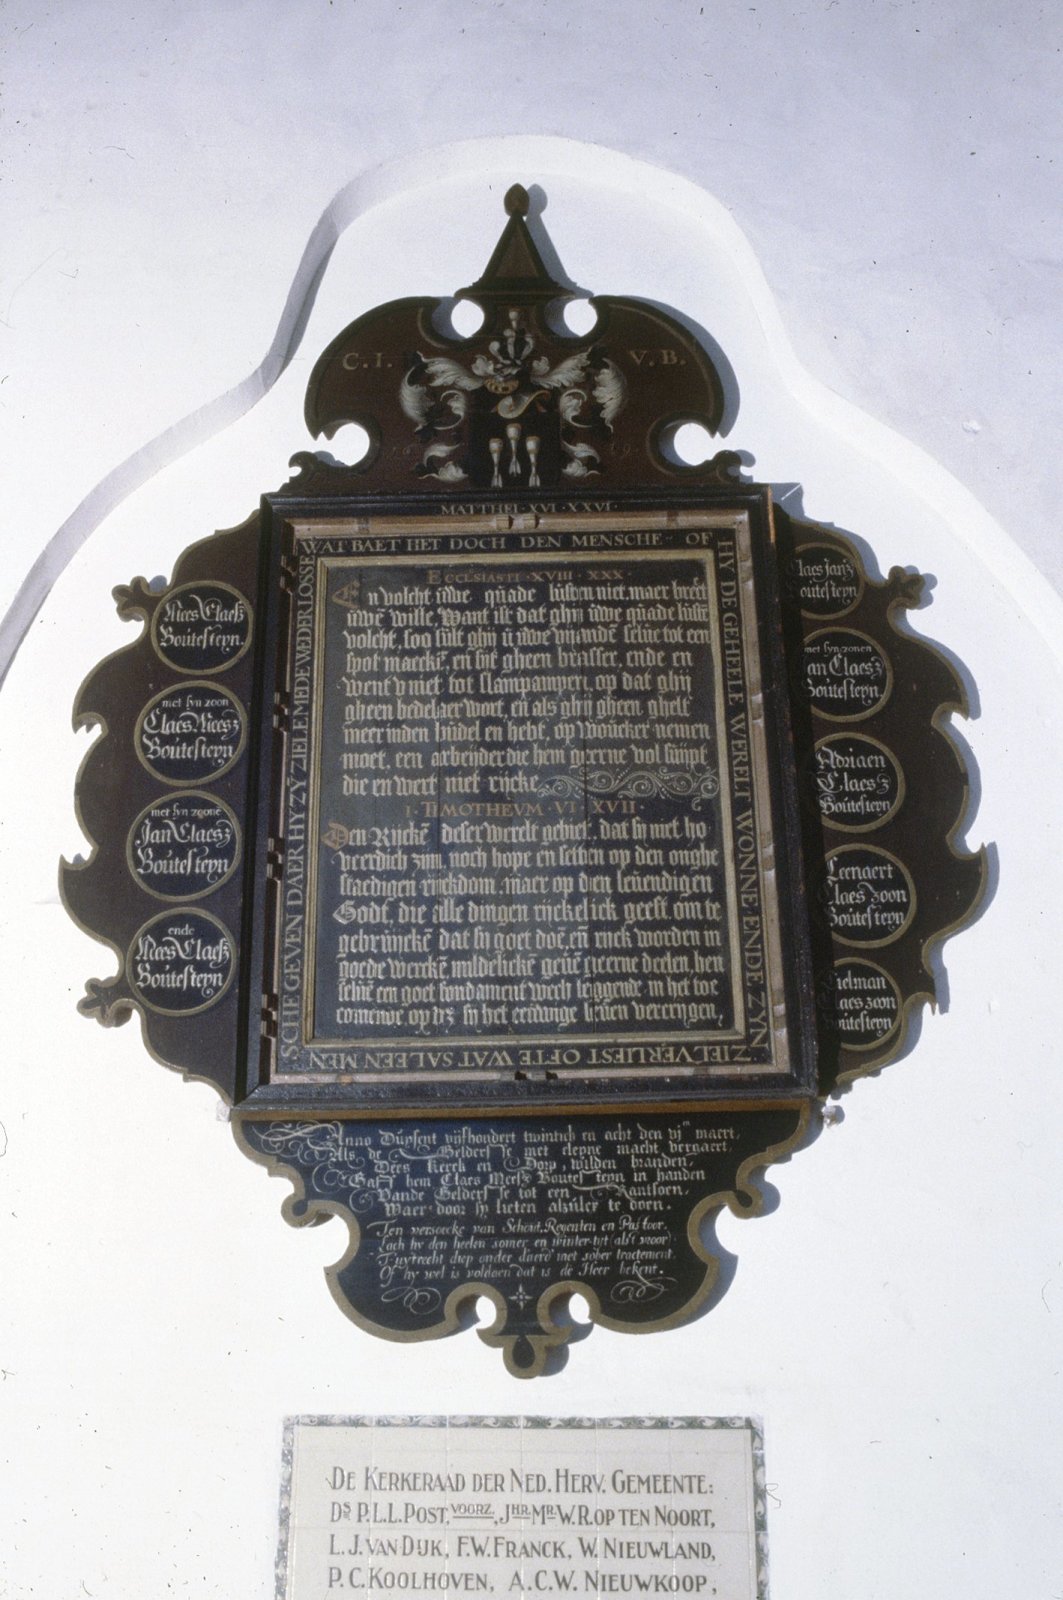 C.I. V.B.
MATTHEI·XVI·XXVI·
WAT BAET HET DOCH DEN MENSCHE OF
HY DE GEHEELE WERELT WONNE ENDE ZYN
ZIEL VERLIEST OFTE WAT SAL EEN MEN
SCHE GEVEN DAER HY ZYZIELE MEDE WEDER LOSSE
ECCLSIASTI·XVIII·XXX·
En volcht uwe quade lusten niet maer breect
uwen wille, Want ist dat ghij uwe quade lusten
volcht, soo sult ghij u uwe vianden selue tot een
spot maecken, en sijt gheen brasser, ende en
went v niet tot slampamperi, op dat ghij
gheen bedelaer wort, en als ghij gheen ghelt
meer inden buidel en hebt, op woucker nemen
moet, een arbeijder die hem geerne vol suijpt
die en wert niet rijcke
I·TIMOTHEVM·VI·XVII·
Den Rijcken deser werelt gebiet, dat sij niet ho
veerdich zijn, noch hope en setten op den onghe
staedigen rijckdom, maer op dien leuendigen
Godt, die alle dingen rijckelick geeft om te
gebruijcken dat sij goet doen, en rijck worden in
goede wercken mildelicken geuen geerne deelen hen
seluen een goet fondament wech leggende in het toe
comende op dz sij het eeuwige leuen vercrijgen,
Mees Claesz
Boutesteyn.
met syn zoon
Claes Meesz
Boutesteyn
met syn zoone
Jan Claesz
Boutesteyn
ende
Mees Claesz
Boutesteyn
Claes Jansz
Boutesteyn
met syn zonen
Jan Claesz
Boutesteyn
Adriaen
Claesz
Boutesteyn
Leenaert
Claes zoon
Boutesteyn
Tielman
Claes zoon
Boutesteyn
Anno Duysent vijfhondert twintich en acht den vjen maert,
Als de Gelderse met cleyne macht vergaert,
Dees kerck en Dorp, wilden branden,
Gafs hem Claes Meesz Boutesteyn in handen
Vande Gelderse tot een Rantsoen,
Waer door sij lieten alzulcx te doen.
Ten versoecke van Schout, Regenten en Pastoor,
Lach hy den heelen somer en winter tyt (als voor)
T'uytrecht diep onder d'aerd' met sober tractement.
Of hy wel is voldaen dat is de Heer bekent.
DE KERKERAAD DER NED. HERV. GEMEENTE:
DS P.L.L.POST, VOORZ., JHR. MR. W.R. OP TEN NOORT,
L.J. VAN DIJK, F.W. FRANCK, W. NIEUWLAND,
P.C. KOOLHOVEN, A.C.W. NIEUWKOOP,